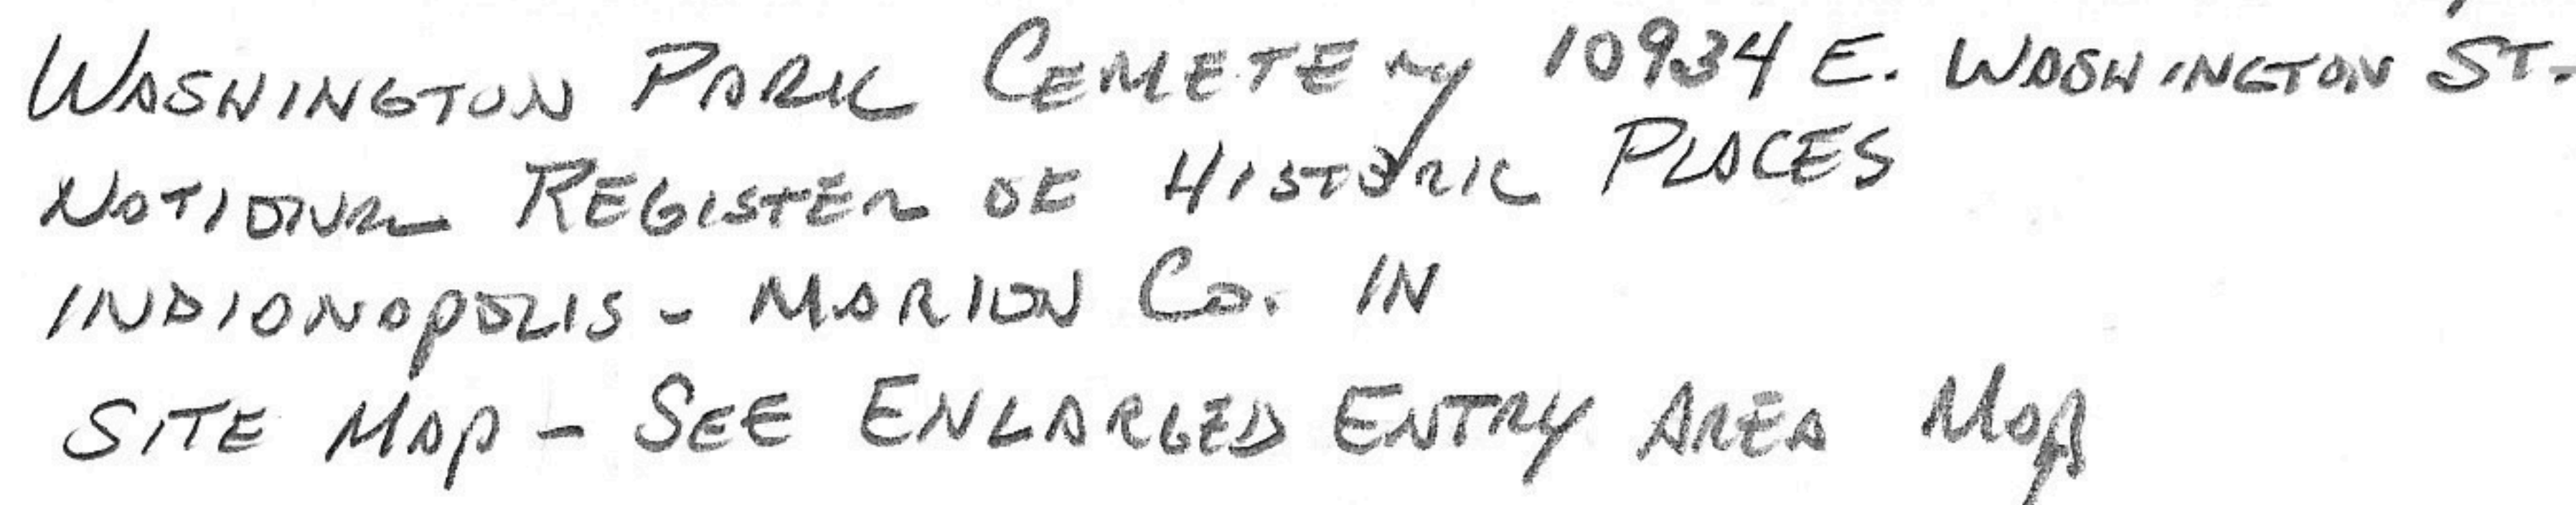 WASHINGTON PARK CEMETERY 10934 E. WASHINGTON ST.
NATIONAL REGISTER OF HISTORIC PLACES
INDIANAPOLIS - MARION CO. IN
SITE MAP - SEE ENLARGED ENTRY AREA MAP